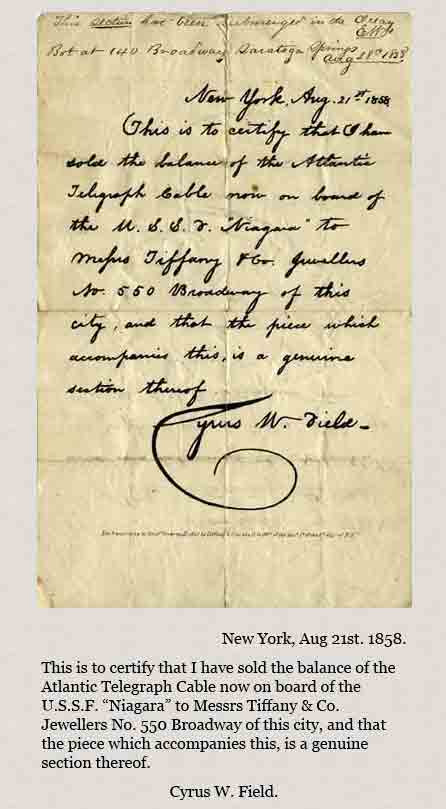 This section has been submerged in the Ocean
Bot at 140 Broadway Saratoga Springs
Aug 28th 1858
New York, Aug. 21st 1858
This is to certify that I have
sold the balance of the Atlantic
Telegraph Cable now on board of
the U. S. S. F. "Niagara" to
Messrs Tiffany & Co. Jewellers
No. 550 Broadway of this
city, and that the piece which
accompanies this, is a genuine
section thereof
Cyrus W. Field
New York, Aug 21st. 1858.
This is to certify that I have sold the balance of the
Atlantic Telegraph Cable now on board of the
U.S.S.F. “Niagara” to Messrs Tiffany & Co.
Jewellers No. 550 Broadway of this city, and that
the piece which accompanies this, is a genuine
section thereof.
Cyrus W. Field.